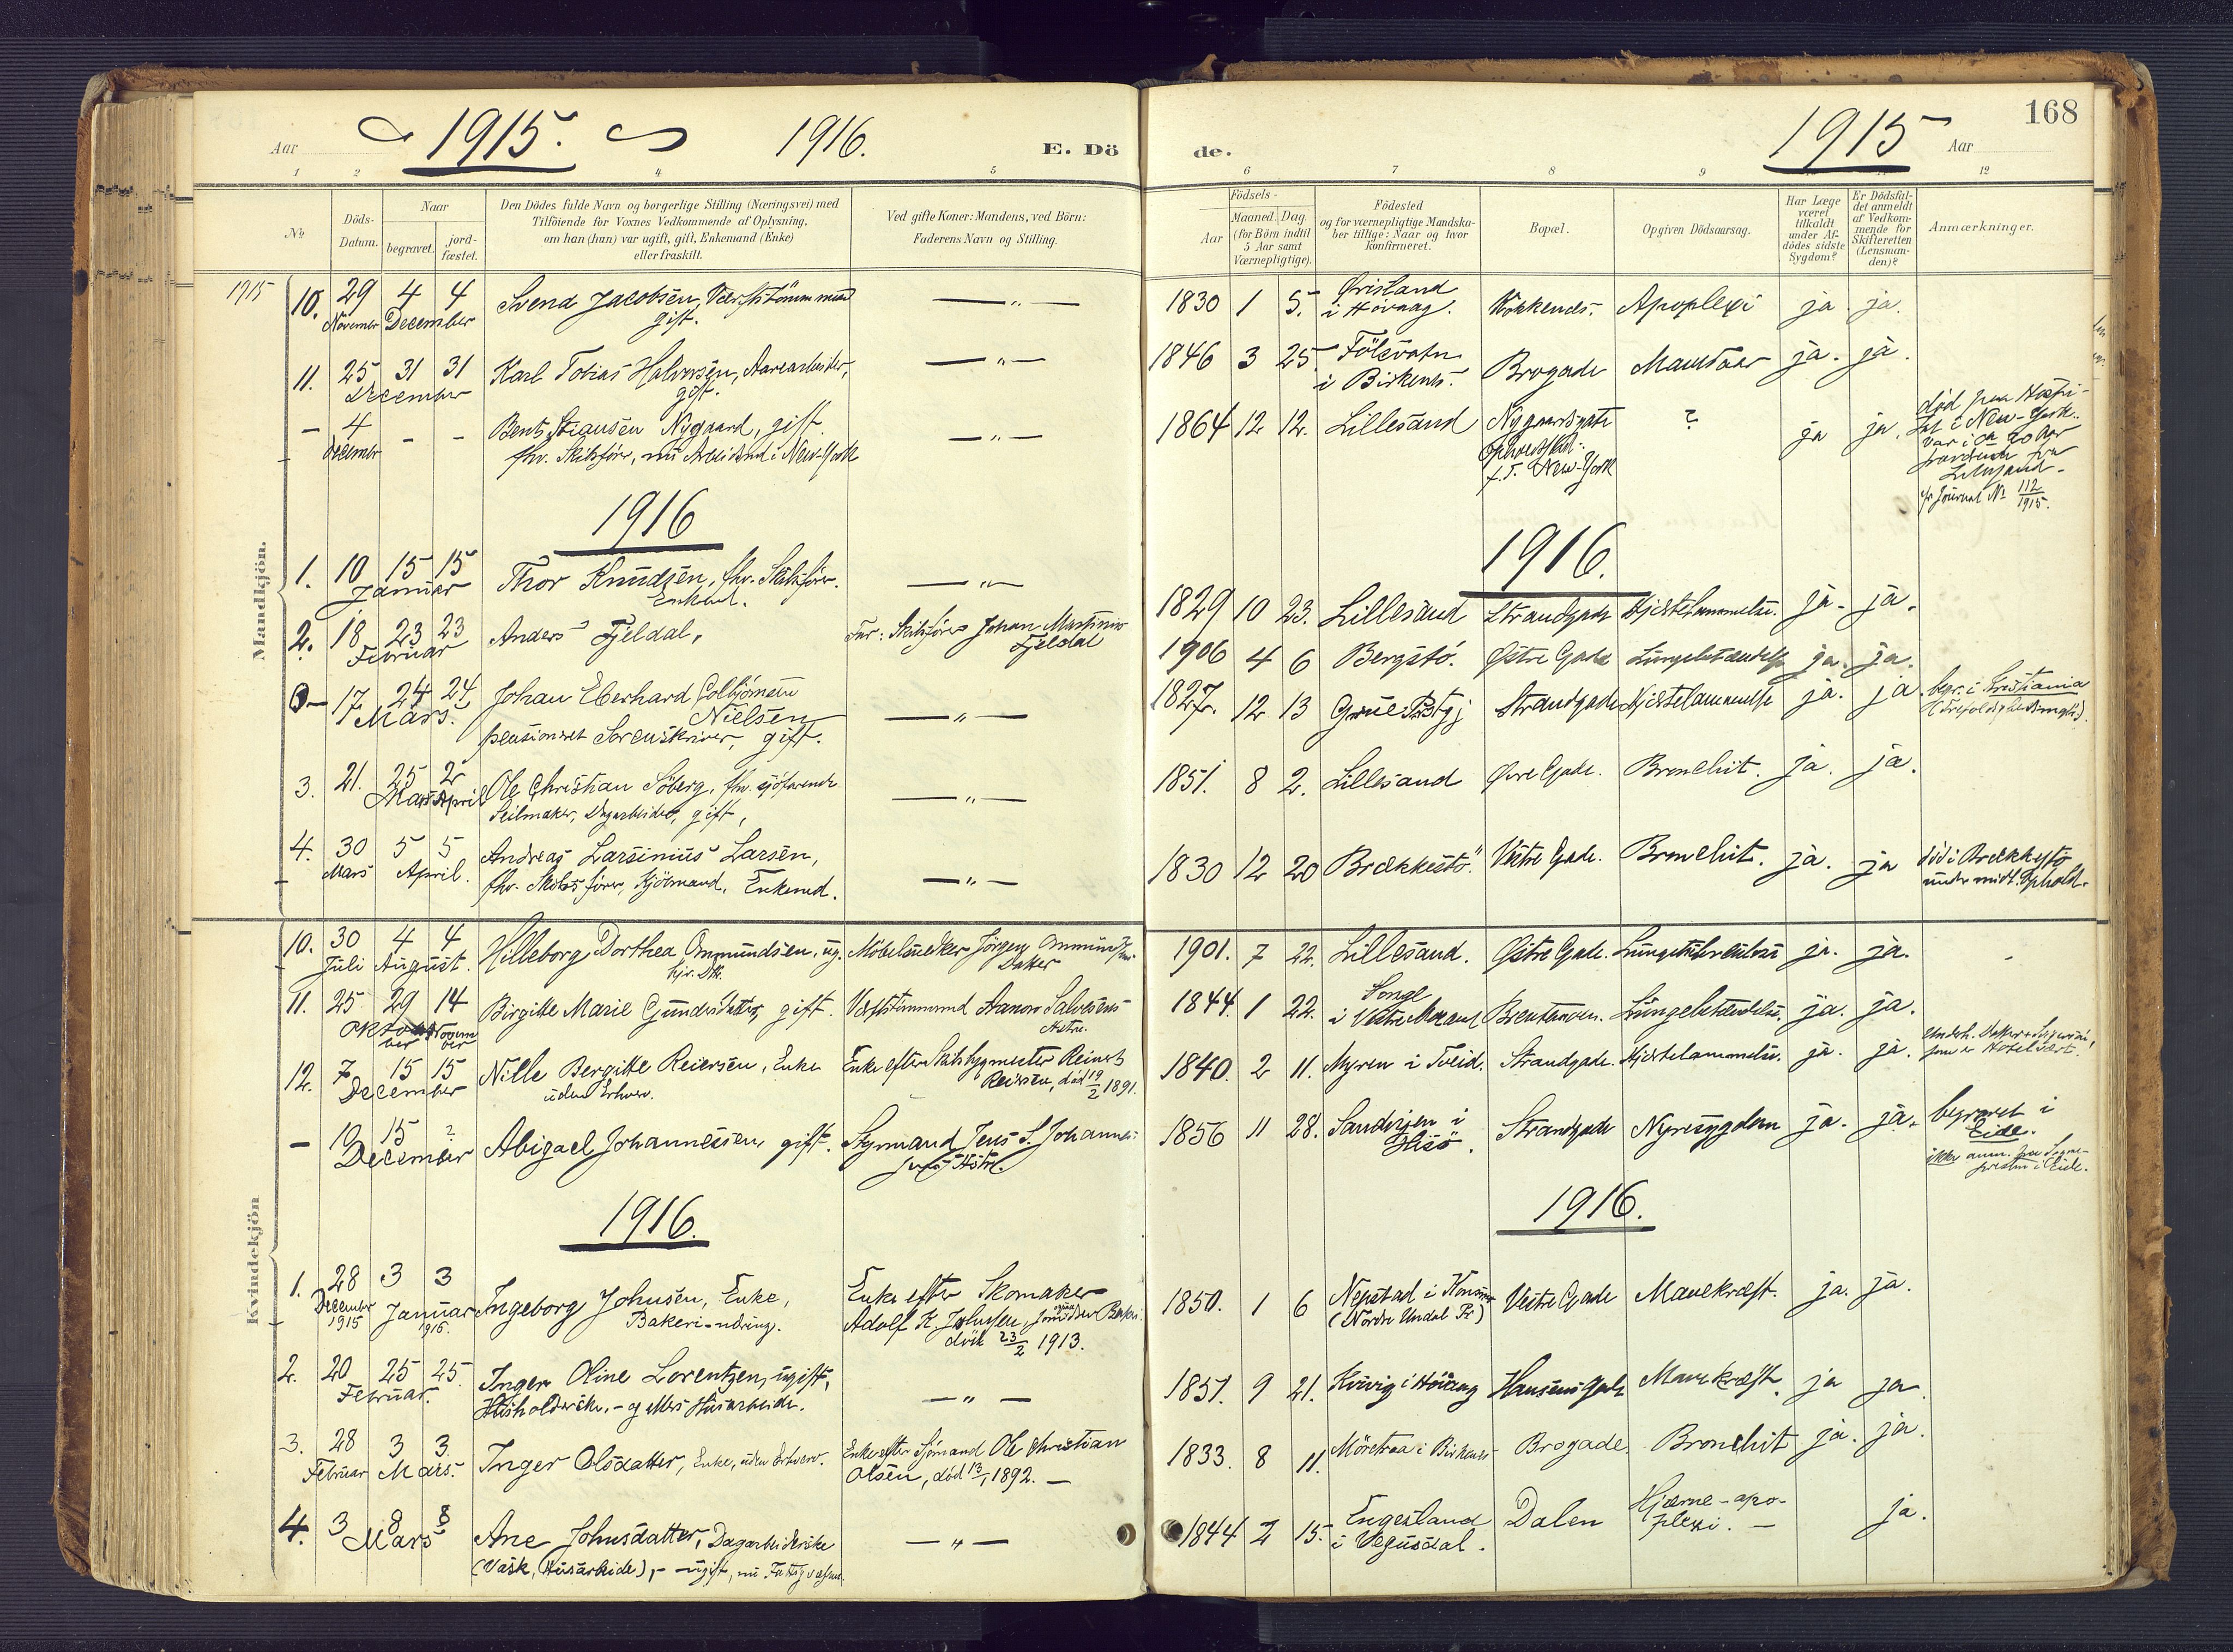 Aar 1915. 1916. E. Dö
1 2 3 4 5
No
Döds-Datum.
Naar
begravet.
jord-fæstet.
Den Dödes fulde Navn og borgerlige Stilling (Næringsvei) med
Tilföiende for Voxnes Vedkommende af Oplysning,
om han (hun) var ugift, gift, Enkemand (Enke)
eller fraskilt.
Ved gifte Koner: Mandens, ved Börn:
Faderens Navn og Stilling.
Mandkjön.
1915 10. 29 4 4 Svend Jacobsen,
November December gift.
11. 25 31 31 Karl Tobias Halvorsen,
December gift.
- 4 - - Bent Stiansen Nygaard, gift
December fhv. Skibsförer, nu Arbeidsmd i New-York
1916
1. 10 15 15 Thor Knudsen, fhv. Skibsförer.
Januar Enkemd.
2. 18 23 23 Anders Fjeldal, Far: Skibsförer Johan Martinius
Februar Fjeldal
- 17 24 24 Johan Eberhard Colbjörnsen
Mars. Nielsen
pensioneret Sorenskriver, gift.
3. 21. 25 2 Ole Christian Söberg, fhv. sjöfarende
Mars April Seilmaker, Dagarbeider, gift,
4. 30 5 5 Andreas Larsinius Larsen,
Mars April. fhv. Skibsförer, Kjöbmand, Enkemd.
Kvindekjön
10. 30 4 4 Hilleborg Dorthea Ommundsen, ug. Möbelsnedker Jörgen Ommundsens
Juli August. hjv. Dtr. Datter
11. 25 29 14 Birgitte Marie Gundersdatter, gift. Aanon Salvesens
Oktober November Hustru.
12. 7 15 15 Nille Bergitte Reiersen, Enke Enke efter Reinert
December uden Erhverv. Reiersen, död 19/2 1891.
- 10 15 ? Abigael Johannessen, gift. Styrmand Jens S. Johannes-
December
1916.
1. 28 3 3 Ingeborg Johnsen, Enke, Enke efter Skomaker
December 1915 Januar 1916. Bakeri-næring. Adolf K. Johnsen,
död 23/2 1913.
2. 20 25 25 Inger Oline Lorentzen, ugift,
Februar. Husholderske,
3. 28 3 3 Inger Olsdatter, Enke, uden Erhverv. Enke efter Sjömand Ole Christian
Februar Mars. Olsen, död 13/1 1892.
4. 3 8 8 Ane Johnsdatter, Dagarbeiderske
Mars (Vask, Husarbeide), ugift,
de. 1915 Aar 168
6 7 8 9 12
Födsels-
Aar
Maaned. Dag.
(for Börn indtil
5 Aar samt
Værnepligtige).
Födested
og for værnepligtige Mandska-
ber tillige: Naar og hvor
konfirmeret.
Bopæl.
Opgiven Dödsaarsag.
Har Læge
været
tilkaldt
under Af-
dödes sidste
Sygdom?
Er Dödsfal-
det anmeldt
af Vedkom-
mende for
Skifteretten
(Lensman-
den)?
Anmærkninger.
1830 1 5. Øvisland Apoplexi ja ja.
i Høvaag.
1846 3 25 Brogade ja. ja.
i Birkenes.
1864 12 12. Lillesand Nygaardsgate ? ja ja. död paa Hospi-
f. T. New-York tal i New-York.
Var i ca 20 Aar
fraværende fra
Lillesand.
cfr Journal No 112/1915.
1916.
1829 10 23. Lillesand Strandgade Hjertelammelse. ja. ja.
1906 4 6 Bergstö. Østre Gade Lungebetændelse ja. ja.
1827. 12 13 Grue Pstgj Strandgade Hjertelammelse ja. ja begr. i Kristiania
1851. 8 2. Lillesand Øvre Gade. Bronchit. ja. ja.
1830 12 20 Brækkestö. Vestre Gade. Bronchit. ja. ja död i Brækkestö
under midl. Ophold.
1901. 7 22. Lillesand. Østre Gade. Lungetuberculose ja. ja.
1844. 1 22. Songe Lungebetændelse. ja. ja.
i Vestre Moland
1840. 2 11. Myren i Tveid. Strandgade. Hjertelammelse. ja. ja.
1856 11 28. i Strandgade Nyresygdom ja. ja. begravet i
Hisö. Eide.
1916.
1850. 1 6 Vestre Gade Mavekræft. ja. ja.
(Nordre Undal Pr)
1857. 9 21. Mavekræft. ja ja
1833. 8 11. i Birkenes Brogade. Bronchit ja. ja.
1844 2 15. Engesland Dalen Hjerne-apo- ja.
i Vegusdal. plexi.